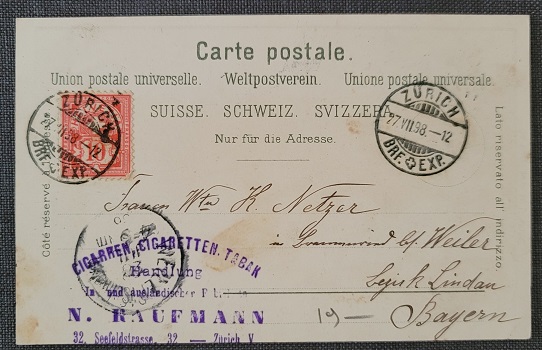 Carte postale.
Union postale universelle. Weltpostverein. Unione postale universale.
SUISSE. SCHWEIZ. SVIZZERA.
Nur für die Adresse.
Côté réservé à l'adresse.
Lato riservato all' indirizzo.
ZÜRICH
27.VII.98.-12
BRF. EXP.
ZÜRICH
27.VII.98.-12
BRF. EXP.
K. Netzer
in b/ Weiler
bezirk Lindau
Bayern
19—
CIGARREN, CIGARETTEN, TABAK
Handlung
In- und ausländischer
N. KAUFMANN
32, Seefeldstrasse, 32 — Zürich V